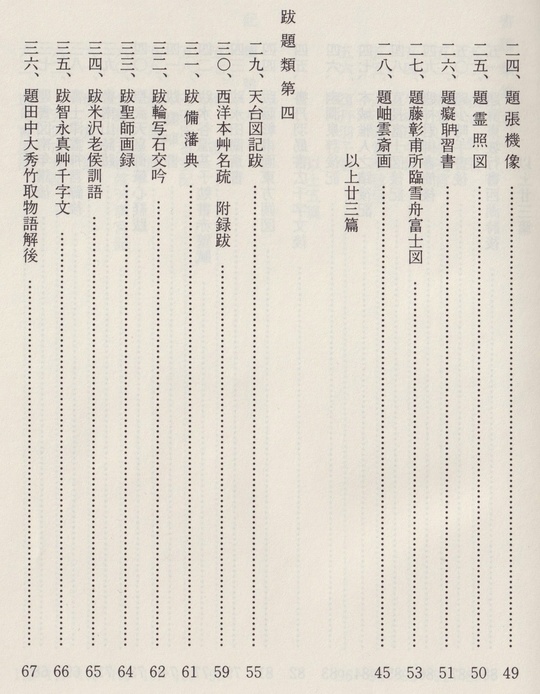 二四、題張機像 49
二五、題霊照図 50
二六、題癡聃習書 51
二七、題藤彰甫所臨雪舟富士図 53
二八、題岫雲斎画 45
以上廿三篇
跋題類第四
二九、天台図記跋 55
三〇、西洋本艸名疏　附録跋 59
三一、跋備藩典 61
三二、跋輪写石交吟 62
三三、跋聖師画録 64
三四、跋米沢老侯訓語 65
三五、跋智永真艸千字文 66
三六、題田中大秀竹取物語解後 67